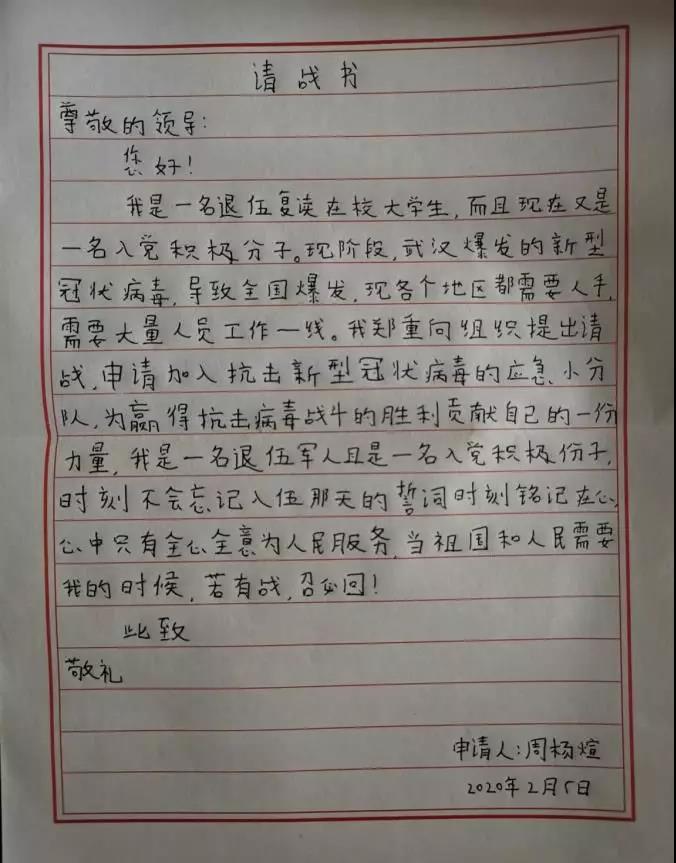 请战书
尊敬的领导:
您好!
我是一名退伍复读在校大学生,而且现在又是
一名入党积极分子。现阶段,武汉爆发的新型
冠状病毒,导致全国爆发,现各个地区都需要人手,
需要大量人员工作一线。我郑重向组织提出请
战,申请加入抗击新型冠状病毒的应急小分
队,为赢得抗击病毒战斗的胜利贡献自己的一份
力量,我是一名退伍军人且是一名入党积极份子,
时刻不会忘记入伍那天的誓词时刻铭记在心,
心中只有全心全意为人民服务,当祖国和人民需要
我的时候,若有战,召必回!
此致
敬礼
申请人:周杨煊
2020年2月5日